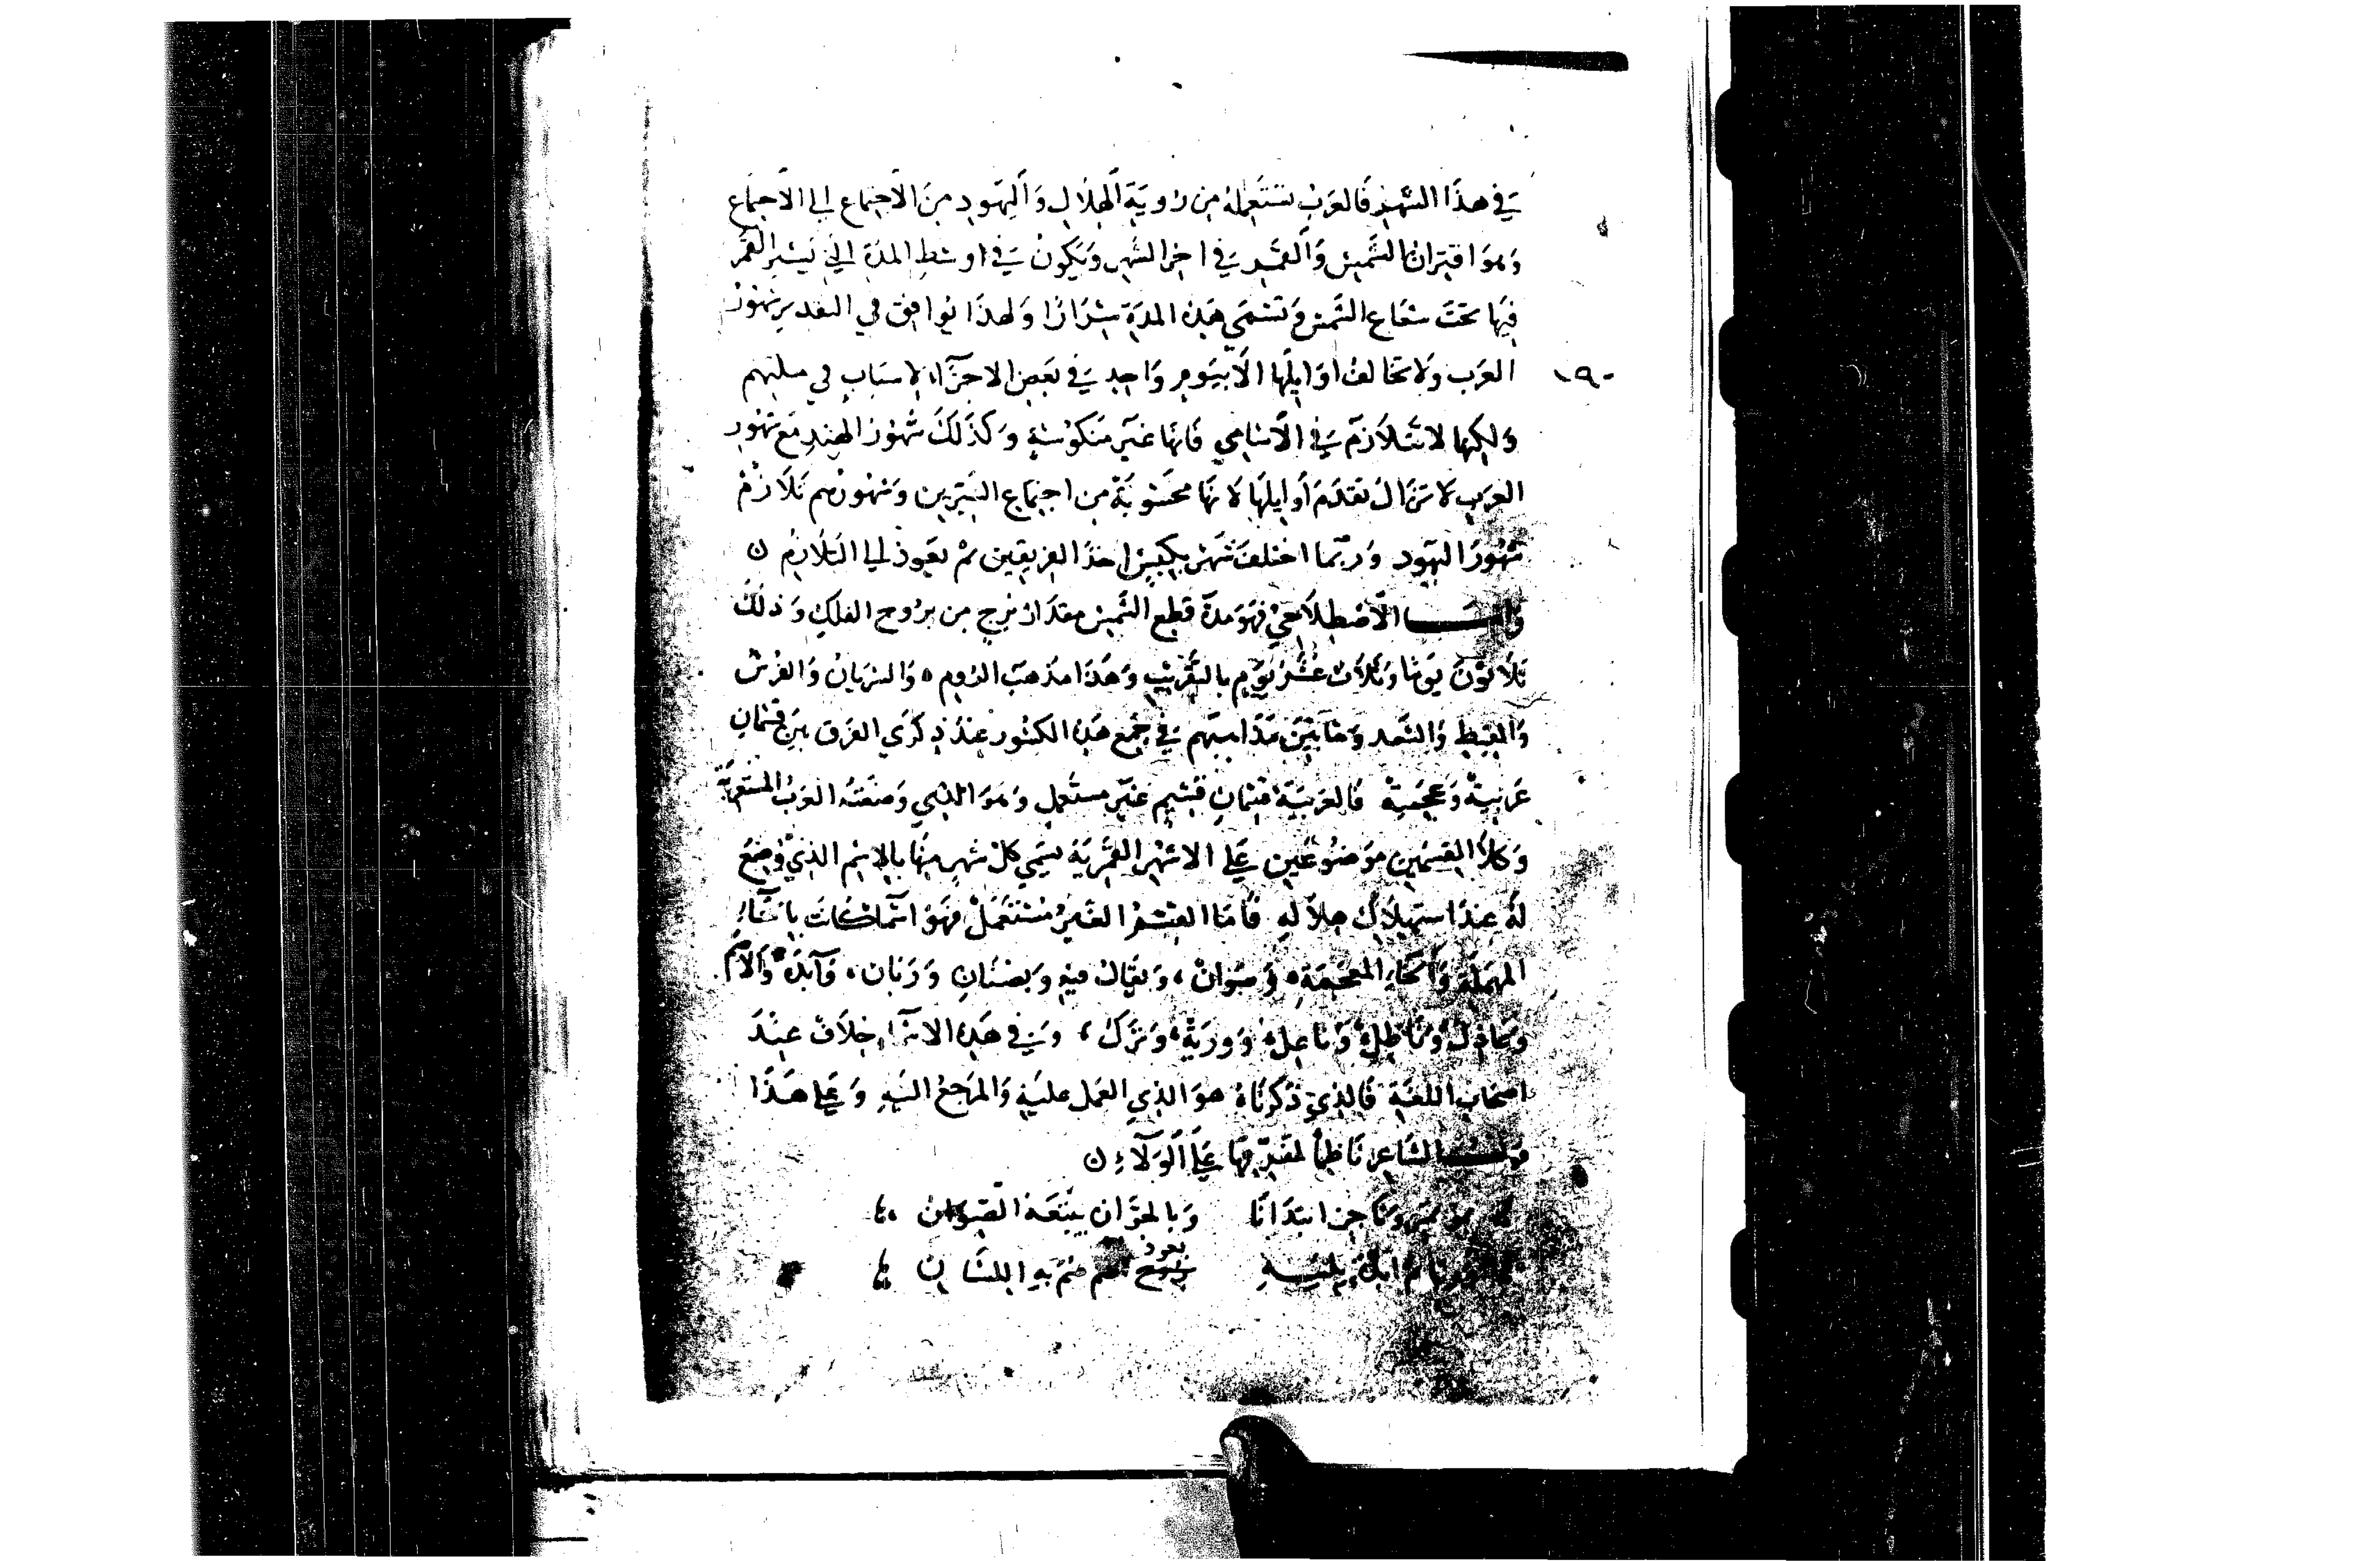 في هذا الشهر فالعرب تستعمله من روية الهلال واليهود من الاجتماع الى الاجتماع
وهو اقتران الشمس والقمر في اخر الشهر ويكون في اوسط المدة التي يسير القمر
فيها تحت شعاع الشمس وتسمى هذه المدة سرارا ولهذا توافق في العدد شهور
١٩٠
العرب ولا تخالف اوايلها الا بيوم واحد في بعض الاجزاء لاسباب في ملتهم
ولكنها لا تتلازم في الاسامي فانها غير منكوسة وكذلك شهور الهند مع شهور
العرب لا تزال تقدم اوايلها لانها محسوبة من اجتماع النيرين وشهورهم تلازم
شهور اليهود وربما اختلف شهر بكبس احد الفريقين ثم يعود الى التلازم ن
واما الاصطلاحي فهو مدة قطع الشمس مقدار برج من بروج الفلك وذلك
ثلاثون يوما وثلاث عشر يوم بالتقريب وهذا مذهب الروم والسريان والفرس
والقبط والسغد ومابين مذاهبهم في جمع هذه الكسور عند ذكرى الفرق بين قسمان
عربية وعجمية فالعربية قسمان قسم غير مستعمل وهو الذي وضعته العرب المستعربة
وكلا القسمين موضوعين على الاشهر القمرية يسمي كل شهر منها بالاسم الذي وضع
له عند استهلال هلاله فاما القسم الغير مستعمل فهو
المهملة والخاء المعجمة وصوان ويقال فيه وبصنان ورنان وآبدة والاصم
وعاذل وناطل وناعل وورنة وبرك وفي هذه الاسماء خلاف عند
اصحاب اللغة فالذي ذكرناه هو الذي العمل عليه والمرجع اليه وعلى هذا
قول الشاعر ناظما لمفترقها على الولاء ن
مؤتمر وناجر ابتدانا وبالخوان يتبعه الصوان
ايده يليه يعود اصم صم به اللسان